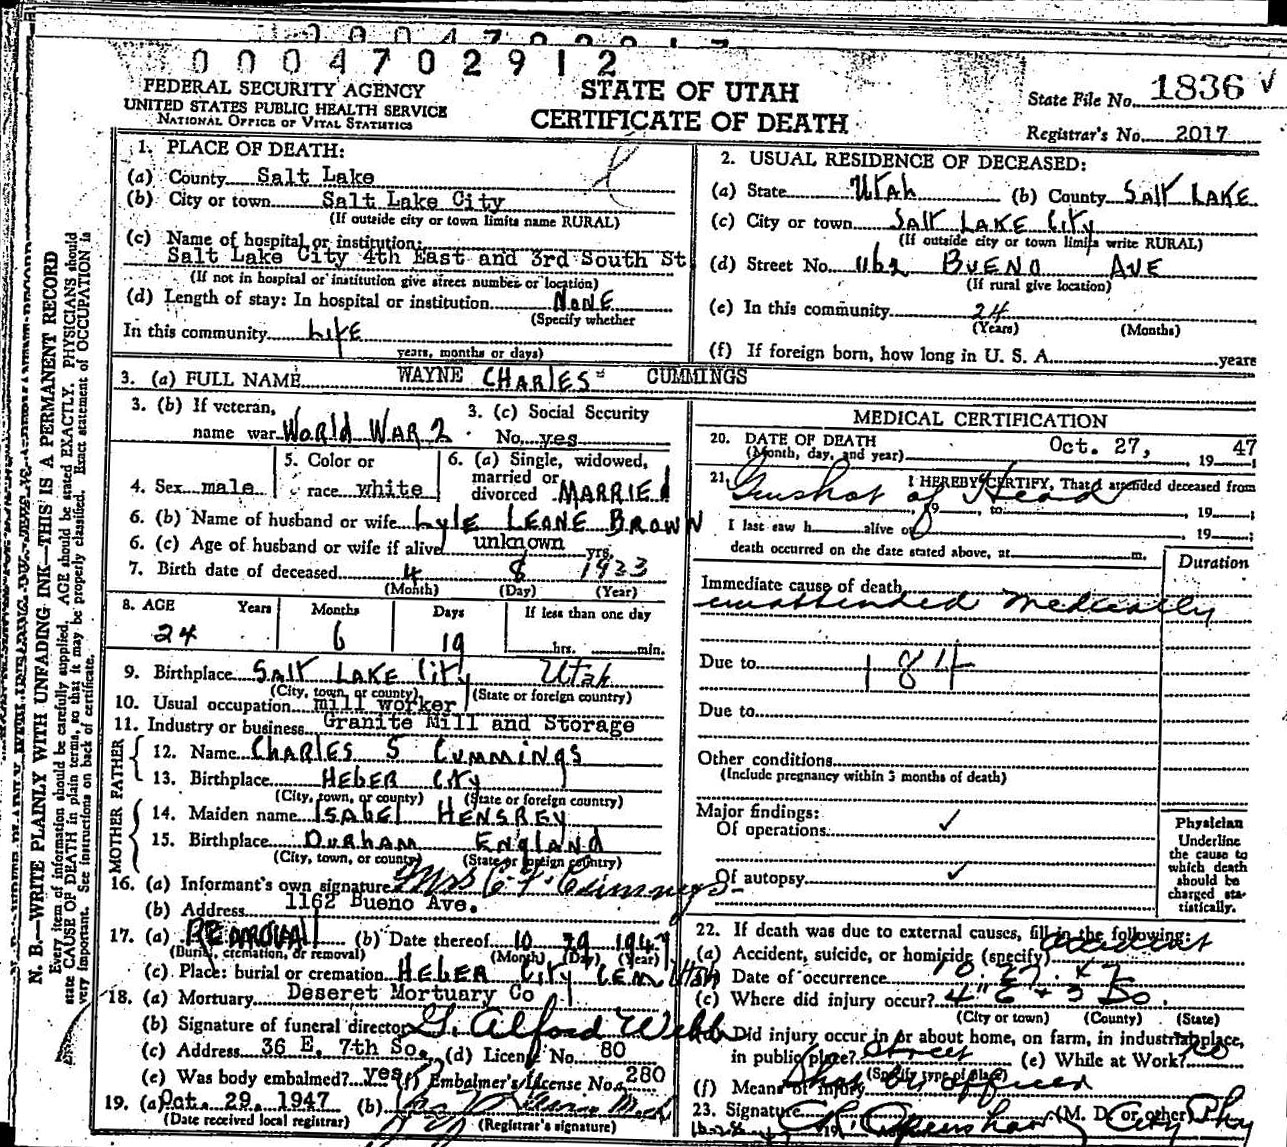 0004702912
FEDERAL SECURITY AGENCY
UNITED STATES PUBLIC HEALTH SERVICE
NATIONAL OFFICE OF VITAL STATISTICS
STATE OF UTAH
CERTIFICATE OF DEATH
State File No. 1836 ✓
Registrar's No. 2017
N. B.—WRITE PLAINLY WITH UNFADING INK—THIS IS A PERMANENT RECORD
Every item of information should be carefully supplied. AGE should be stated EXACTLY. PHYSICIANS should
state CAUSE OF DEATH in plain terms, so that it may be properly classified. Exact statement of OCCUPATION is
very important. See instructions on back of certificate.
1. PLACE OF DEATH:
(a) County Salt Lake
(b) City or town Salt Lake City
(If outside city or town limits name RURAL)
(c) Name of hospital or institution:
Salt Lake City 4th East and 3rd South St
(If not in hospital or institution give street number or location)
(d) Length of stay: In hospital or institution NONE
(Specify whether
In this community LIFE
years, months or days)
2. USUAL RESIDENCE OF DECEASED:
(a) State Utah (b) County SALT LAKE
(c) City or town SALT LAKE CITY
(If outside city or town limits write RURAL)
(d) Street No. 1162 BUENO AVE
(If rural give location)
(e) In this community 24
(Years) (Months)
(f) If foreign born, how long in U. S. A. years
3. (a) FULL NAME WAYNE CHARLES CUMMINGS
3. (b) If veteran, name war World WAR 2
3. (c) Social Security No. yes
4. Sex male
5. Color or race white
6. (a) Single, widowed, married or divorced MARRIED
6. (b) Name of husband or wife LYLE LEONE BROWN
6. (c) Age of husband or wife if alive unknown yrs.
7. Birth date of deceased 4 8 1923
(Month) (Day) (Year)
8. AGE Years Months Days If less than one day
24 6 19 hrs. min.
9. Birthplace SALT LAKE CITY Utah
(City, town, or county) (State or foreign country)
10. Usual occupation mill worker
11. Industry or business Granite Mill and Storage
FATHER
12. Name CHARLES S CUMMINGS
13. Birthplace HEBER CITY
(City, town, or county) (State or foreign country)
MOTHER
14. Maiden name ISABEL
15. Birthplace DURHAM ENGLAND
(City, town, or county) (State or foreign country)
16. (a) Informant's own signature Mrs Cummings
(b) Address 1162 Bueno Ave.
17. (a) REMOVAL (b) Date thereof 10 29 1947
(Burial, cremation, or removal) (Month) (Day) (Year)
(c) Place: burial or cremation HEBER CITY CEM Utah
18. (a) Mortuary Deseret Mortuary Co
(b) Signature of funeral director G. Alford Webb
(c) Address 36 E. 7th So. (d) License No. 80
(e) Was body embalmed? yes (f) Embalmer's License No. 280
19. (a) Oct. 29, 1947 (b)
(Date received local registrar) (Registrar's signature)
MEDICAL CERTIFICATION
20. DATE OF DEATH Oct. 27, 1947
(Month, day, and year)
21. I HEREBY CERTIFY, That I attended deceased from
Gunshot of Head
, 19 , to , 19 ;
I last saw h alive on , 19 ;
death occurred on the date stated above, at m.
Duration
Immediate cause of death
unattended medically
Due to 184
Due to
Other conditions
(Include pregnancy within 3 months of death)
Major findings:
Of operations ✓
Of autopsy ✓
Physician
Underline
the cause to
which death
should be
charged sta-
tistically.
22. If death was due to external causes, fill in the following:
(a) Accident, suicide, or homicide (specify) accident
Date of occurrence 10. 27. 47
(c) Where did injury occur? 4" E & 3 So.
(City or town) (County) (State)
Did injury occur in or about home, on farm, in industrial place,
in public place? Street (e) While at Work? no
(Specify type of place)
(f) Means of injury Shot by officer
23. Signature (M. D. or other) City Phy